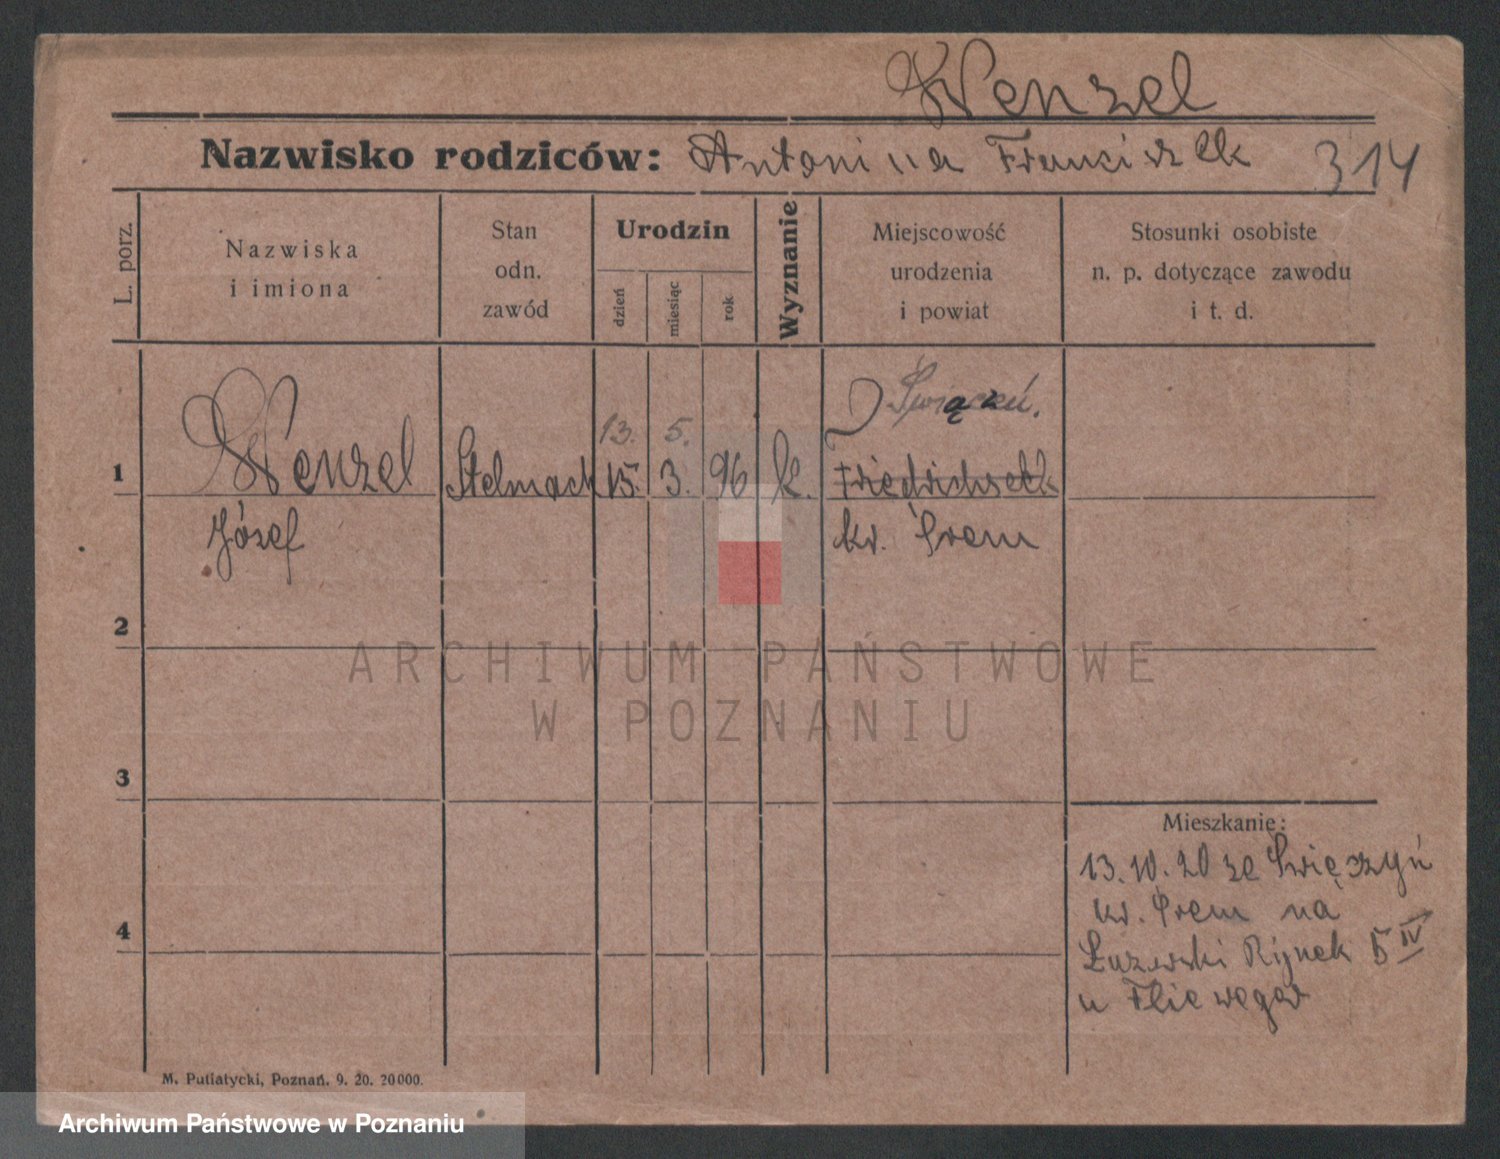 Wenzel
Nazwisko rodziców: Antonina Franciszek 314
L. porz.
Nazwiska
i imiona
Stan
odn.
zawód
Urodzin
dzień
miesiąc
rok
Wyznanie
Miejscowość
urodzenia
i powiat
Stosunki osobiste
n. p. dotyczące zawodu
i t. d.
13. 5.
1 Wenzel Stelmach 15. 3. 96 k. Friedrichseck
Józef kr. Śrem
2
3
4
Mieszkanie:
13.10.20 ze Święczyń
kr. Śrem na
Rynek 5 IV
u
M. Putiatycki, Poznań. 9. 20. 20000.
ARCHIWUM PAŃSTWOWE
W POZNANIU
Archiwum Państwowe w Poznaniu